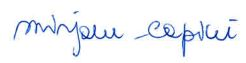 mirjam capici